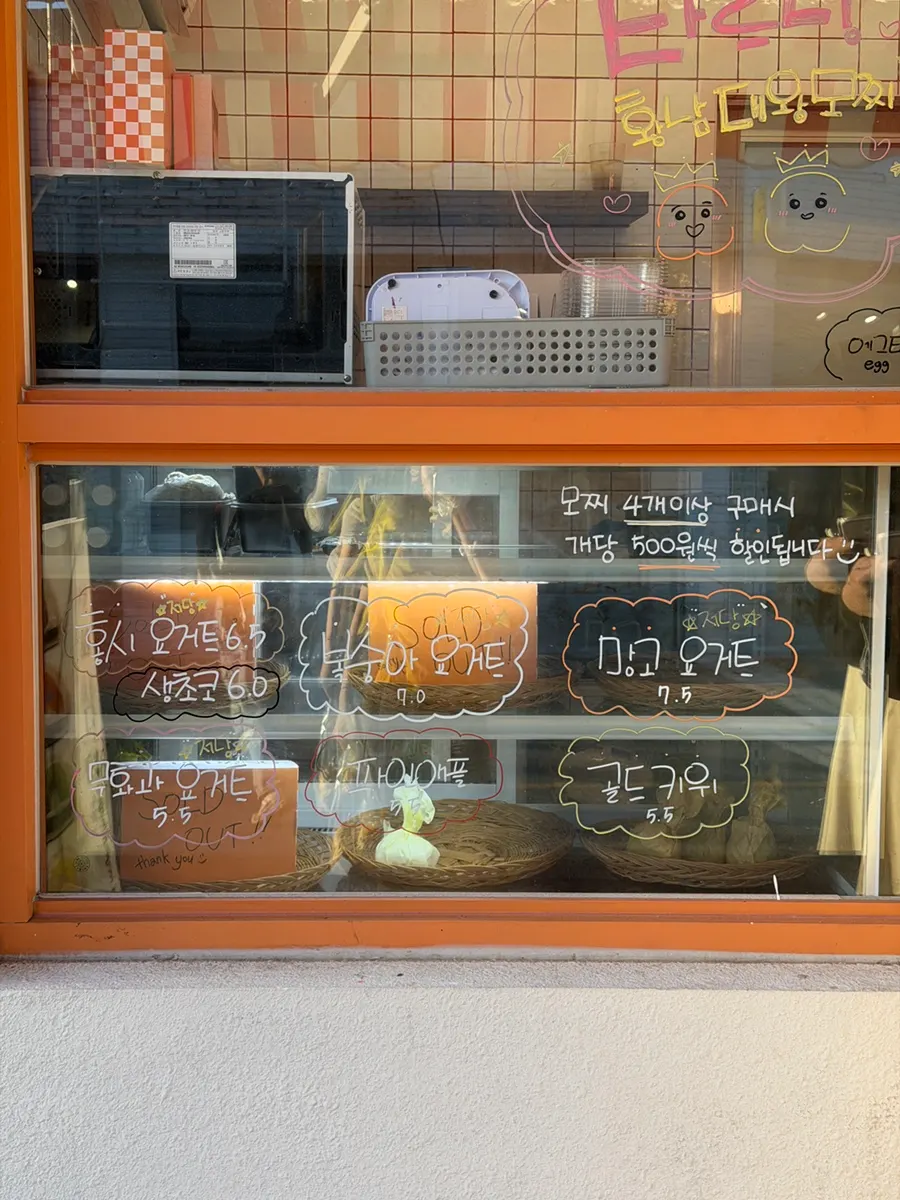 타르트!
황남대왕모찌
에그타
egg
모찌 4개이상 구매시
개당 500원씩 할인됩니다
저당
홍시 요거트 6.5
생초코 6.0
SOLD OUT!!
복숭아 요거트
7.0
저당
망고 요거트
7.5
저당
무화과 요거트
5.5
SOLD OUT!!
thank you
파인애플
5.5
골드키위
5.5